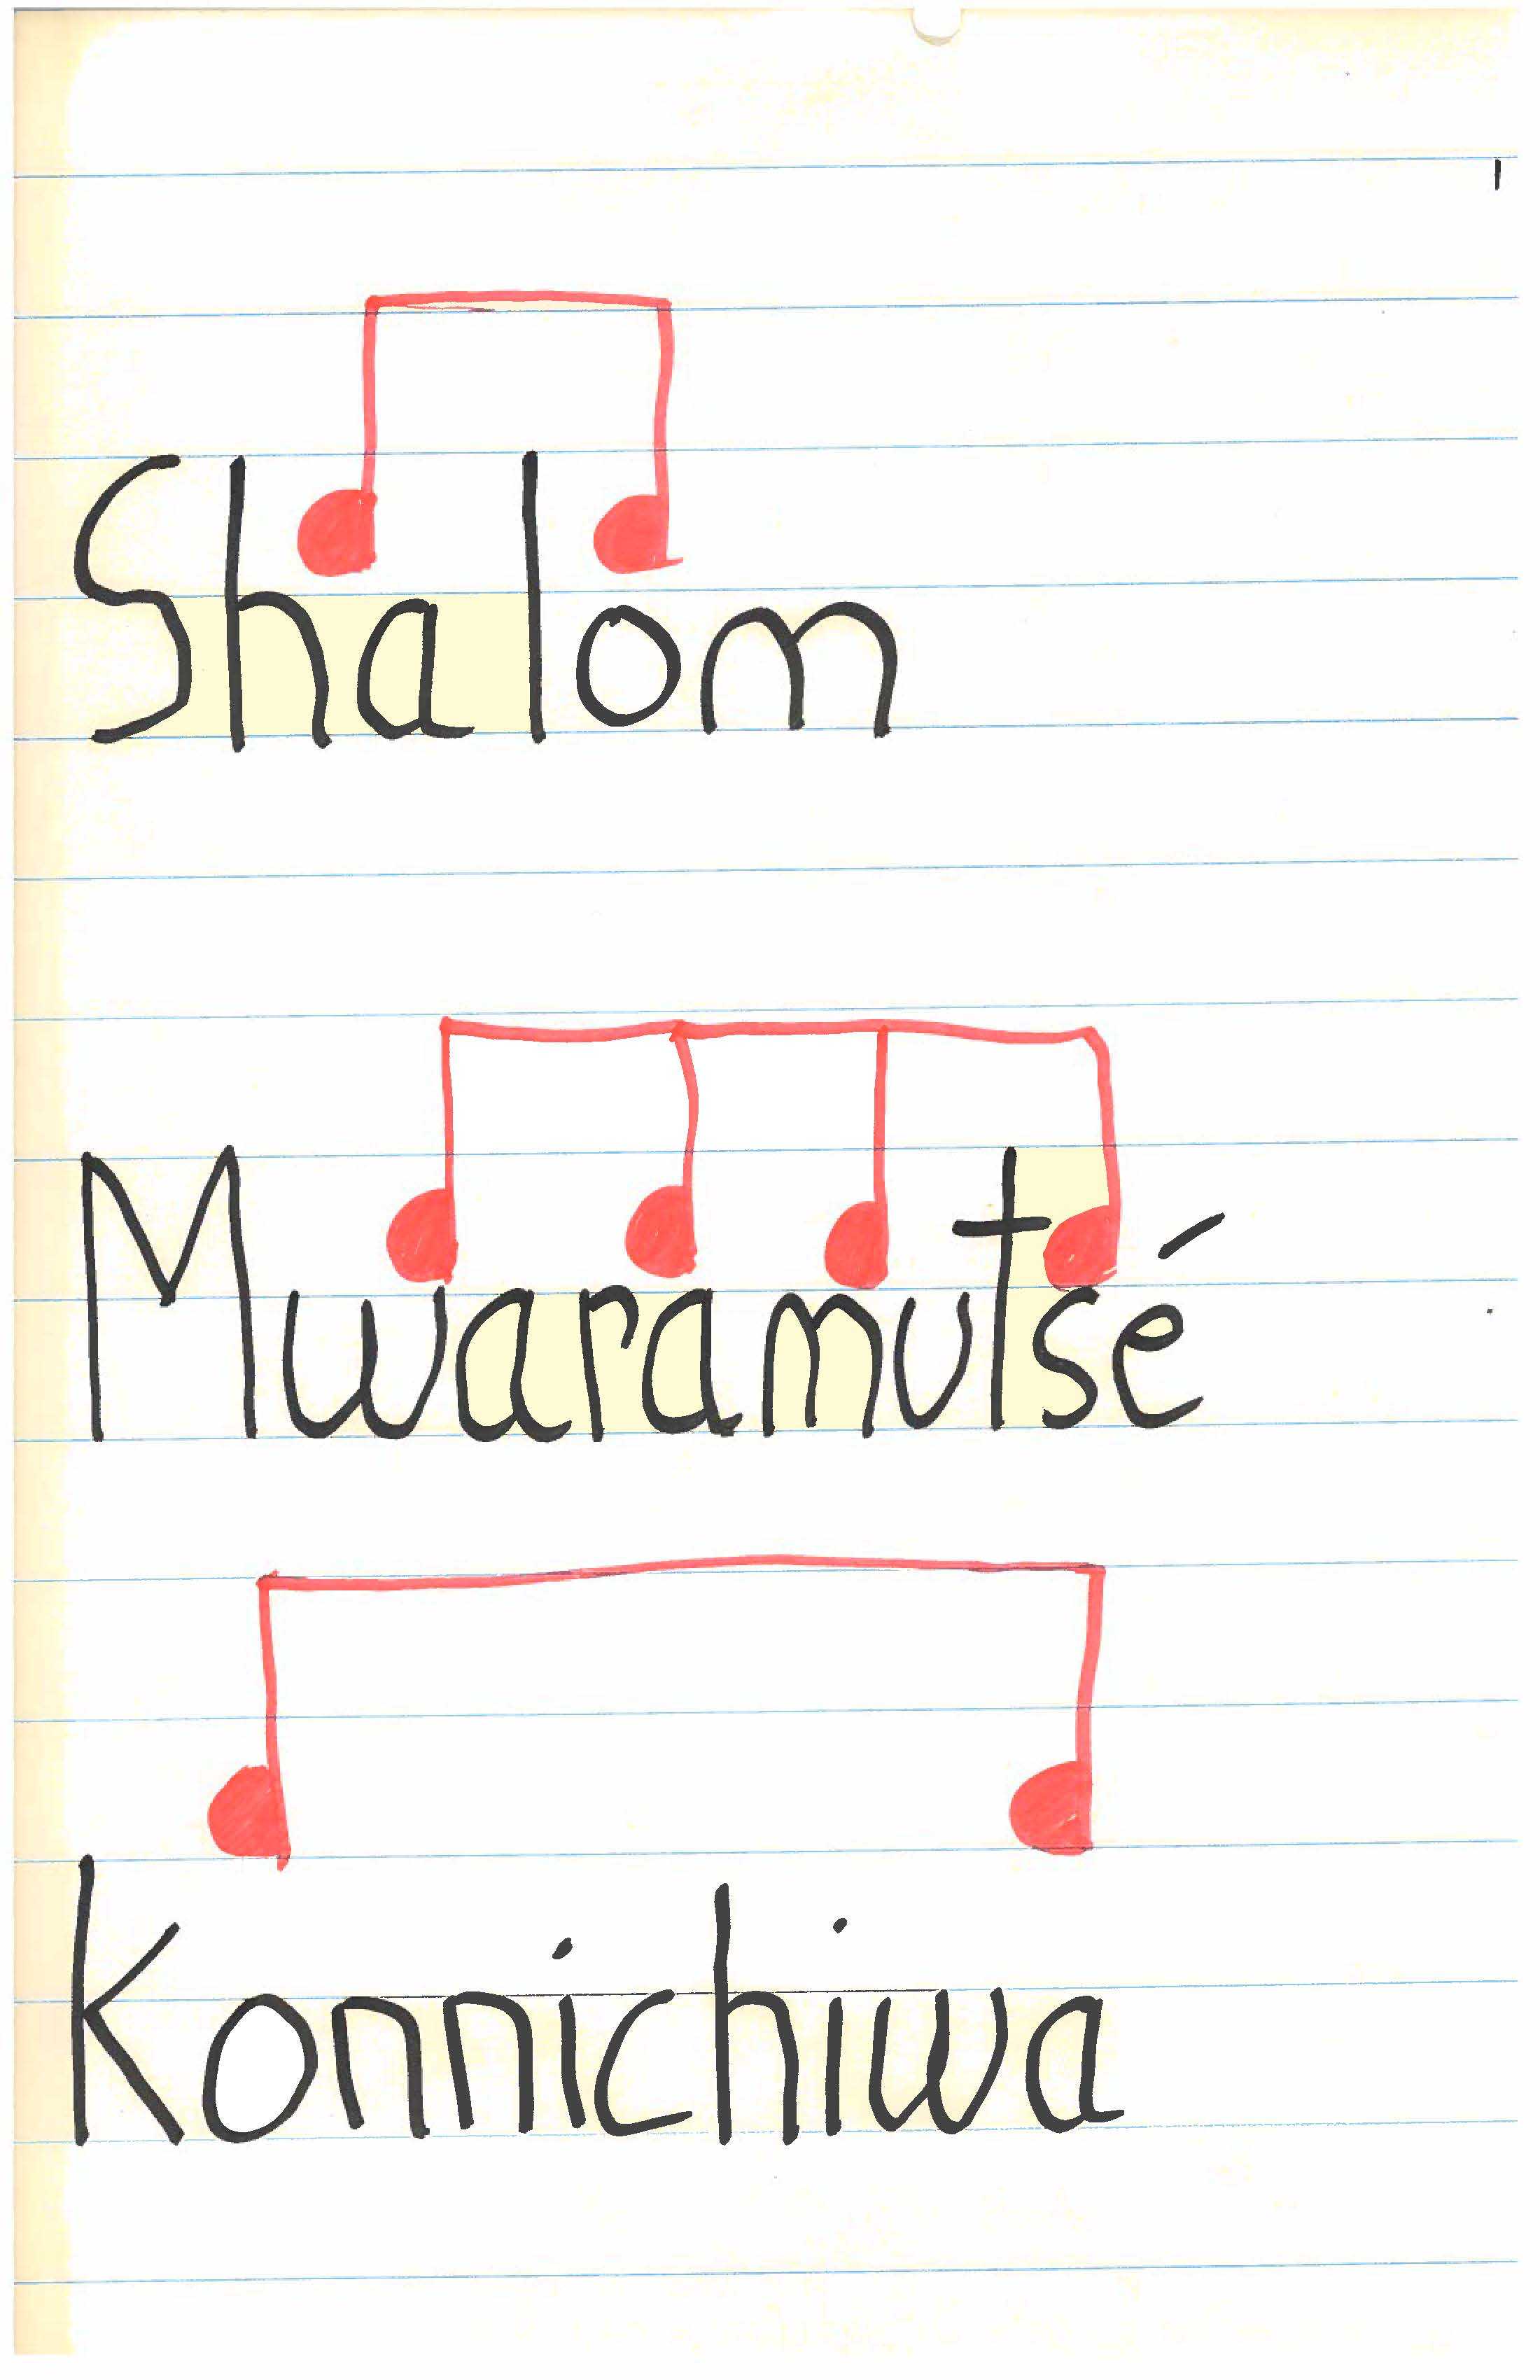 Shalom
Mwaramutsé
Konnichiwa